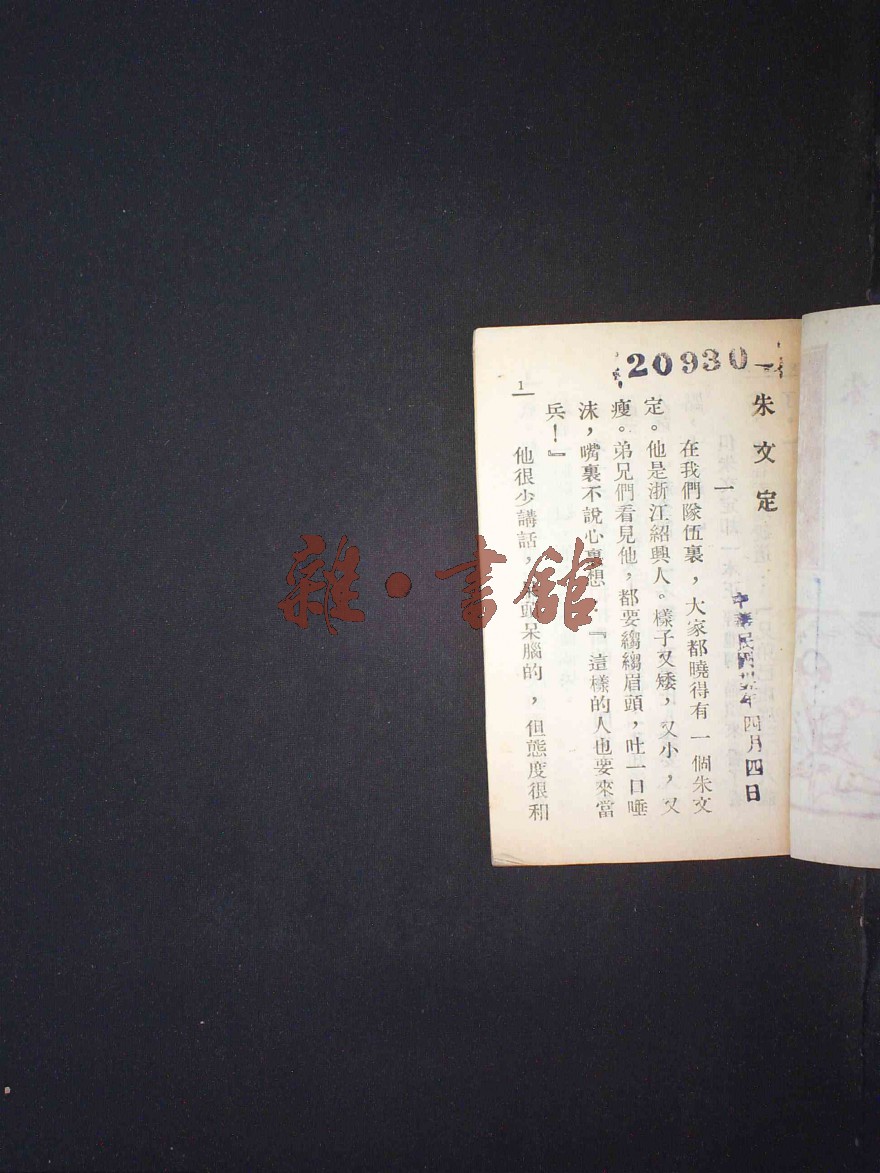 20930
朱文定
中華民國 年四月四日
一
在我們隊伍裏，大家都曉得有一個朱文
定。他是浙江紹興人。樣子又矮，又小，又
瘦。弟兄們看見他，都要縐縐眉頭，吐一口唾
沫，嘴裏不說心裏想：『這樣的人也要來當
兵！』
他很少講話，頭呆腦的，但態度很和
1
雜·書館